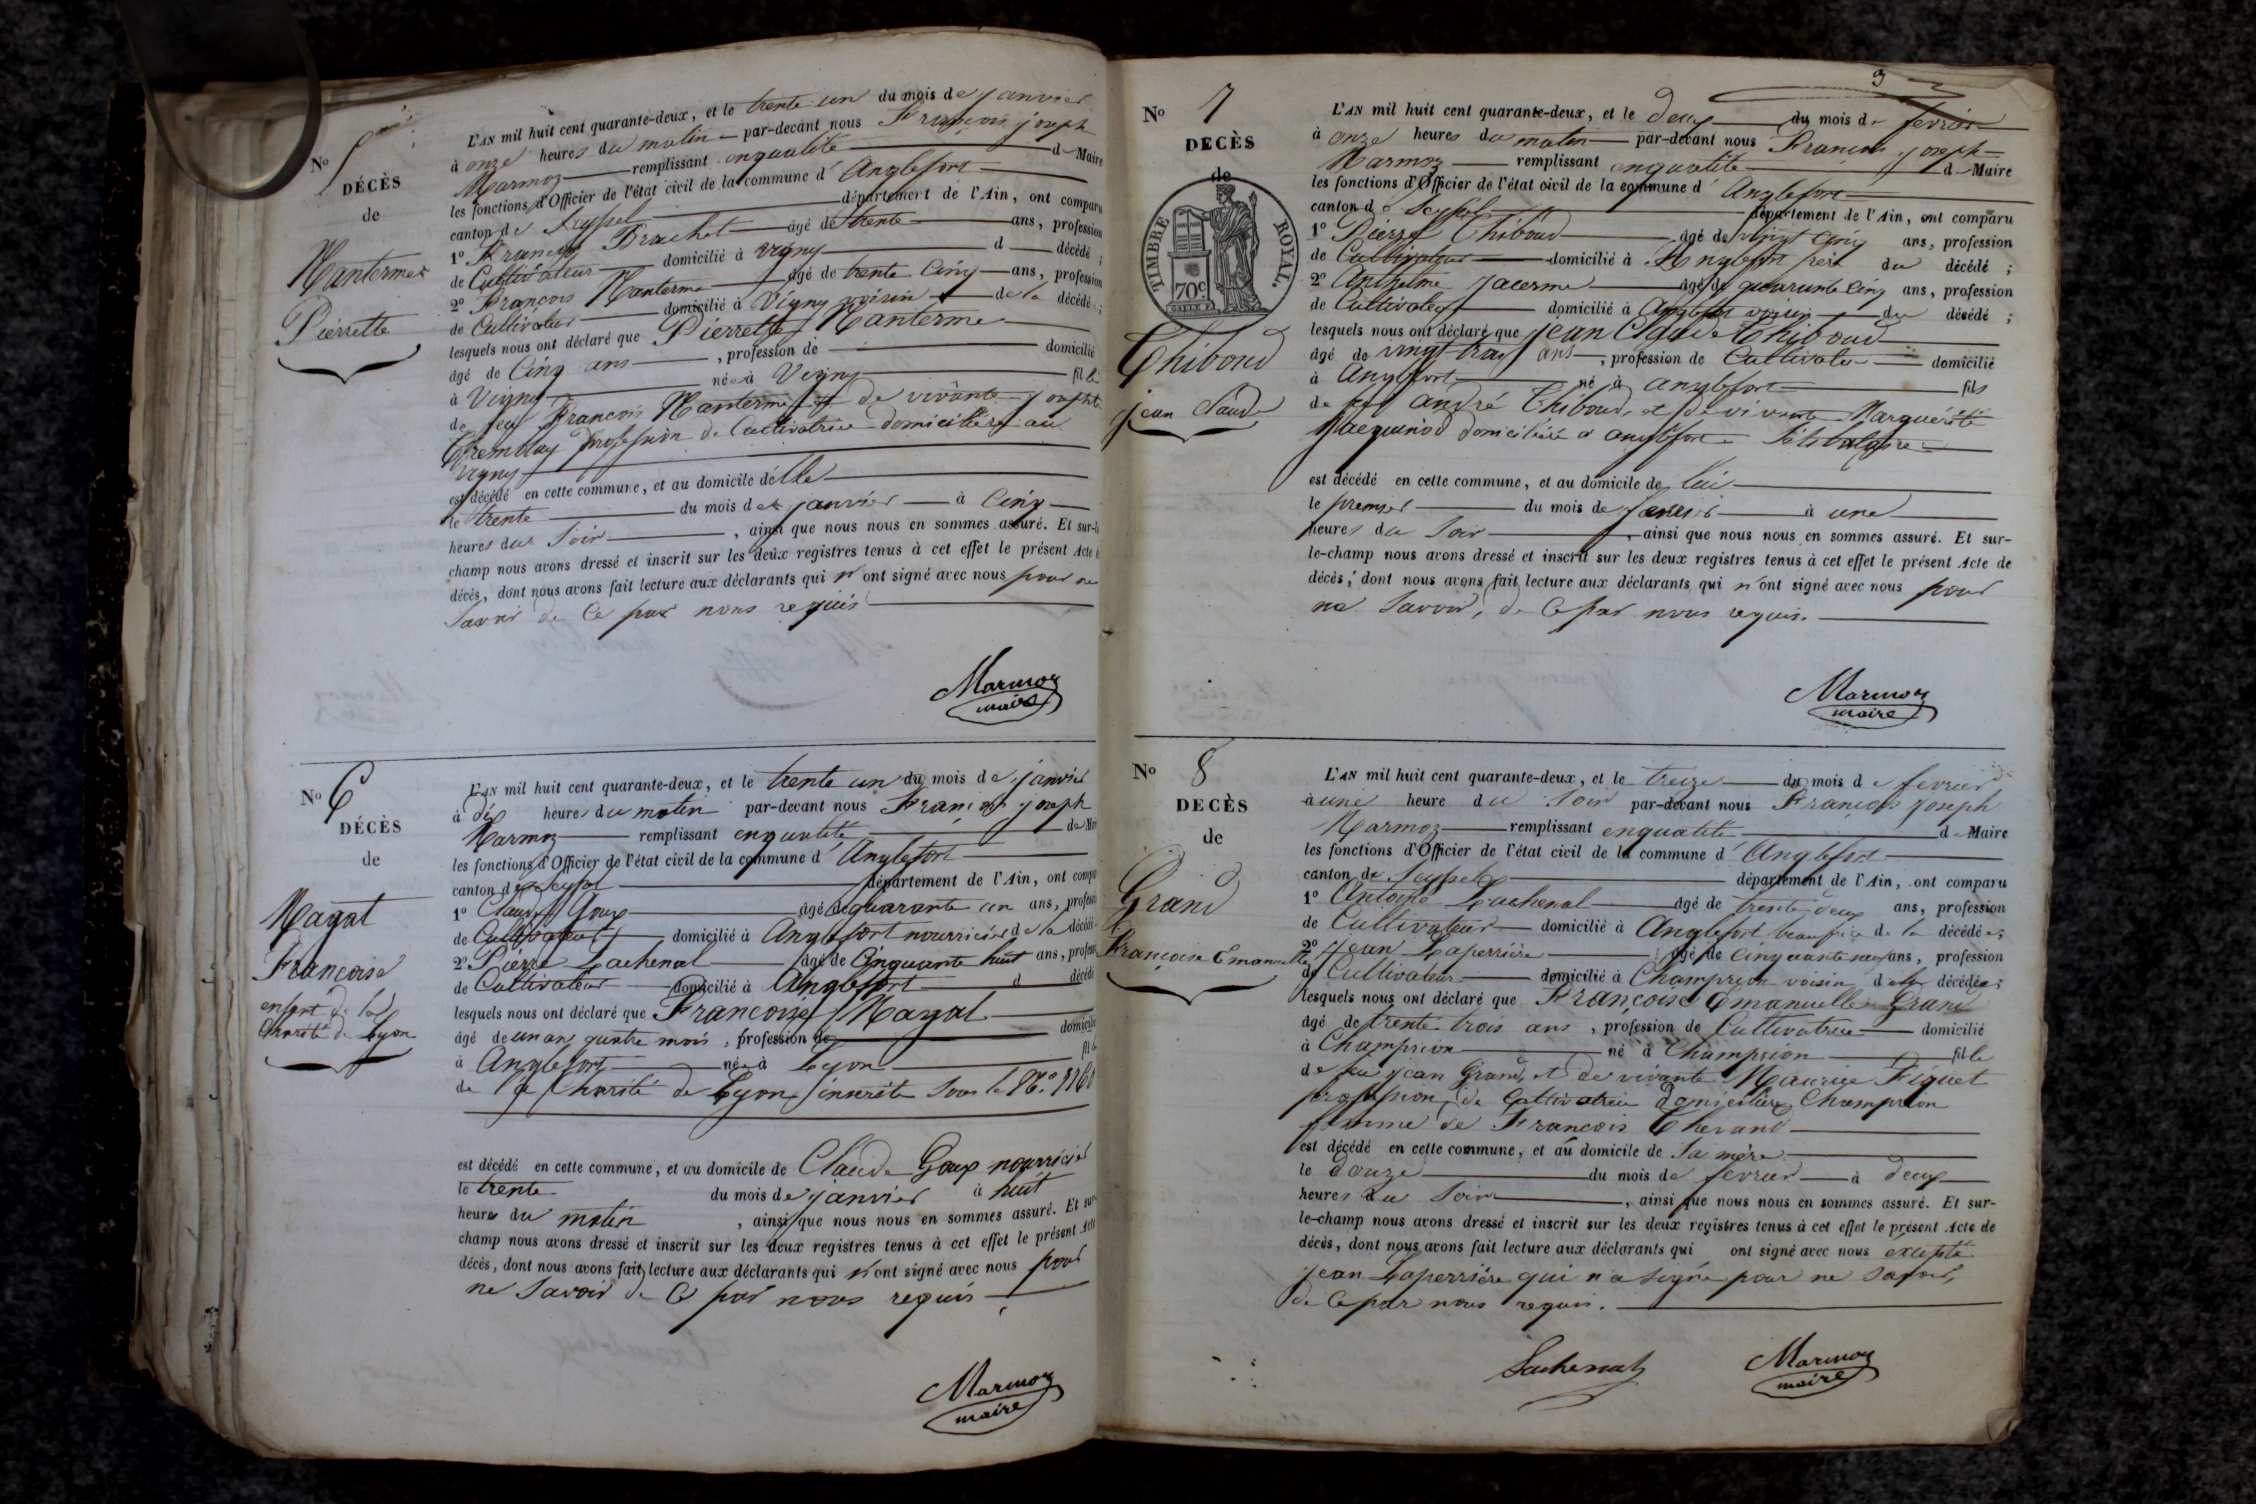 No 5
DÉCÈS
de
Manterme
Pierrette
L'AN mil huit cent quarante-deux, et le trente un du mois de janvier
à onze heures du matin par-devant nous François joseph
Marmoz remplissant enqualité de Maire
les fonctions d'Officier de l'état civil de la commune d'Anglefort
canton de Seyssel département de l'Ain, ont comparu
1º François Brachet âgé de trente ans, profession
de Cultivateur domicilié à Vigny d décédé ;
2º François Manterme âgé de trente Cinq ans, profession
de Cultivateur domicilié à Vigny voisin de la décédée ;
lesquels nous ont déclaré que Pierrette Manterme
âgé de Cinq ans , profession de domicilié
à Vigny née à Vigny fille
de feu François Manterme et de vivante josephte
Tremblay profession de Cultivatrice domiciliée au
Vigny
est décédé en cette commune, et au domicile d'elle
le trente du mois de janvier à Cinq
heures du Soir , ainsi que nous nous en sommes assuré. Et sur-le
champ nous avons dressé et inscrit sur les deux registres tenus à cet effet le présent Acte
décès, dont nous avons fait lecture aux déclarants qui n'ont signé avec nous pour ne
Savoir de Ce par nous requis
Marmoz
maire
No 6
DÉCÈS
de
Mayat
Françoise
enfant de la
Charité de Lyon
L'AN mil huit cent quarante-deux, et le trente un du mois de janvier
à dix heures du matin par-devant nous François joseph
Marmoz remplissant enqualité de Maire
les fonctions d'Officier de l'état civil de la commune d'Anglefort
canton de Seyssel département de l'Ain, ont comparu
1º Claude Goux âgé de quarante un ans, profession
de Cultivateur domicilié à Anglefort nourricier de la décédée
2º Pierre Lachenal âgé de Cinquante huit ans, profession
de Cultivateur domicilié à Anglefort d décédé
lesquels nous ont déclaré que Françoise Mayat
âgé de un an quatre mois , profession de domicilié
à Anglefort née à Lyon fille
de la Charité de Lyon inscrite Sous le No
est décédé en cette commune, et au domicile de Claude Goux nourricier
le trente du mois de janvier à huit
heures du matin , ainsi que nous nous en sommes assuré. Et sur
champ nous avons dressé et inscrit sur les deux registres tenus à cet effet le présent Acte
décès, dont nous avons fait lecture aux déclarants qui n'ont signé avec nous pour
ne Savoir de Ce par nous requis
Marmoz
maire
3
No 7
DECÈS
de
TIMBRE ROYAL.
70c
Thiboud
jean Claude
L'AN mil huit cent quarante-deux, et le deux du mois de fevrier
à onze heures du matin par-devant nous François joseph
Marmoz remplissant enqualité de Maire
les fonctions d'Officier de l'état civil de la commune d'Anglefort
canton de Seyssel département de l'Ain, ont comparu
1º Pierre Thiboud âgé de vingt Cinq ans, profession
de Cultivateur domicilié à Anglefort frere du décédé ;
2º Anthelme Jacerme âgé de quarante Cinq ans, profession
de Cultivateur domicilié à Anglefort voisin du décédé ;
lesquels nous ont déclaré que jean Claude Thiboud
âgé de vingt trois ans , profession de Cultivateur domicilié
à Anglefort né à anglefort fils
de feu andré Thiboud, et de vivante Marguerite
Jacquinod domiciliée a anglefort Célibataire
est décédé en cette commune, et au domicile de lui
le premier du mois de fevrier à une
heures du Soir , ainsi que nous nous en sommes assuré. Et sur-
le-champ nous avons dressé et inscrit sur les deux registres tenus à cet effet le présent Acte de
décès, dont nous avons fait lecture aux déclarants qui n'ont signé avec nous pour
ne Savoir, de Ce par nous requis.
Marmoz
maire
No 8
DECÈS
de
Grand
Françoise Emanuelle
L'AN mil huit cent quarante-deux, et le treize du mois de fevrier
à une heure du Soir par-devant nous François joseph
Marmoz remplissant enqualité de Maire
les fonctions d'Officier de l'état civil de la commune d'Anglefort
canton de Seyssel département de l'Ain, ont comparu
1º Antoine Lachenal âgé de trente deux ans, profession
de Cultivateur domicilié à Anglefort beaufrere de la décédée;
2º jean Laperriere âgé de Cinquante neuf ans, profession
de Cultivateur domicilié à Champrion voisin de la décédée;
lesquels nous ont déclaré que Françoise Emanuelle Grand
âgé de trente trois ans , profession de Cultivatrice domicilié
à Champrion né à Champrion fille
de feu jean Grand, et de vivante Maurice Figuet
profession de Cultivatrice domiciliée Champrion
femme de François Thevand
est décédé en cette commune, et au domicile de Sa mère
le douze du mois de fevrier à deux
heures du Soir , ainsi que nous nous en sommes assuré. Et sur-
le-champ nous avons dressé et inscrit sur les deux registres tenus à cet effet le présent Acte de
décès, dont nous avons fait lecture aux déclarants qui ont signé avec nous excepté
jean Laperriere qui n'a Signé pour ne Savoir,
de Ce par nous requis.
Lachenal
Marmoz
maire